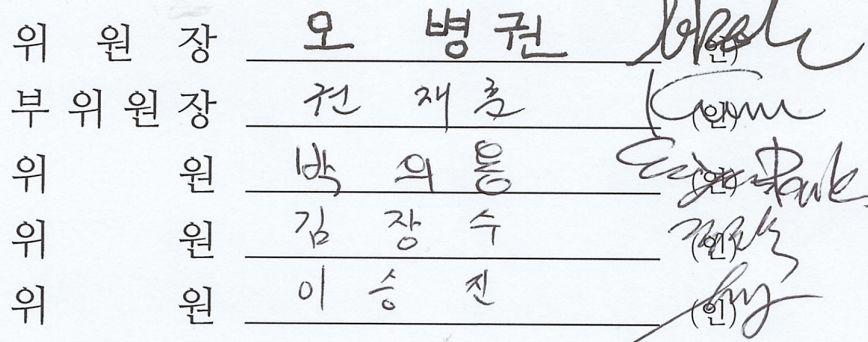 위 원 장 오 병 권 (인)
부 위 원 장 권 재 흠 (인)
위 원 박 의 통 (인)
위 원 김 장 수 (인)
위 원 이 승 진 (인)